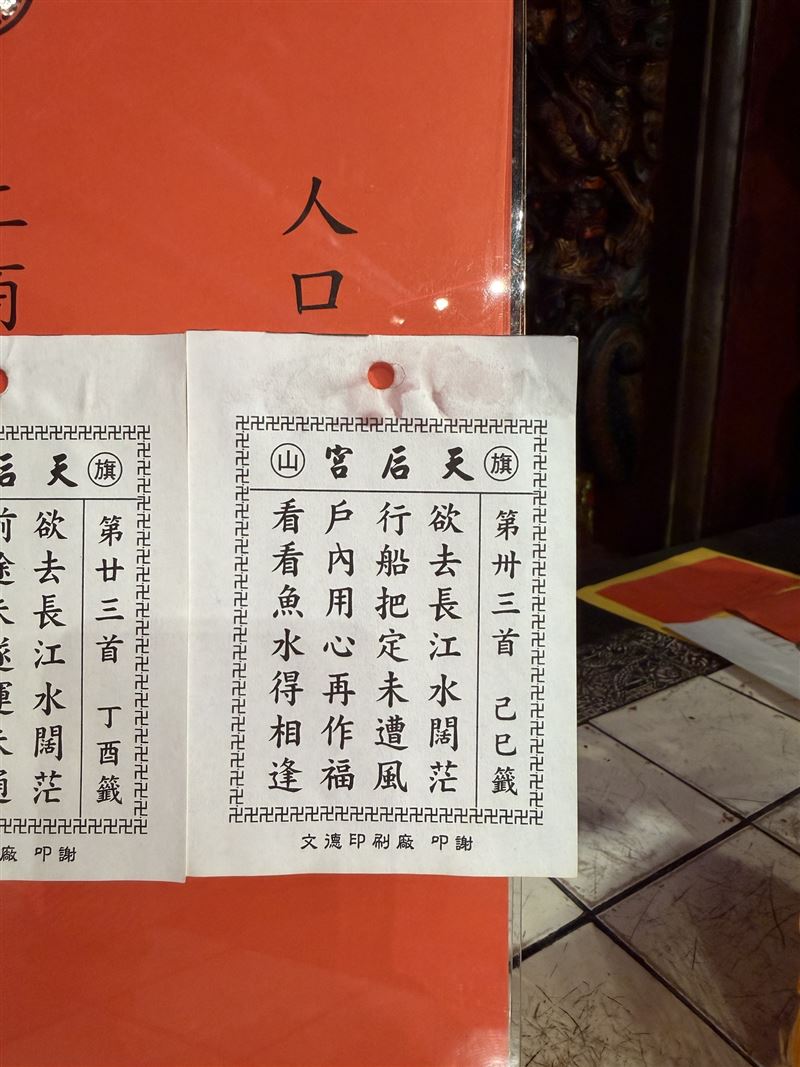 人口
旗 天后宮 山
第卅三首 己巳籤
欲去長江水闊茫
行船把定未遭風
戶內用心再作福
看看魚水得相逢
文德印刷廠 叩謝
旗 天后
第廿三首 丁酉籤
欲去長江水闊茫
前途未遂運未通
廠 叩謝